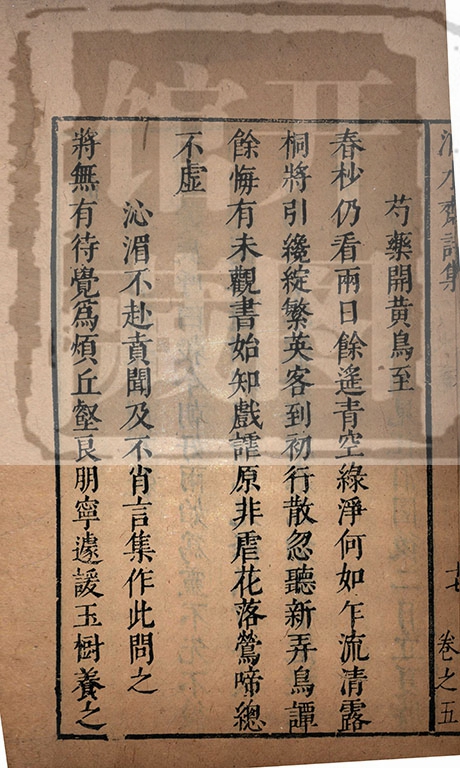 水齋詩集
十七
卷之五
芍藥開黃鳥至
春杪仍看兩日餘遙青空綠淨何如乍流清露
桐將引纔綻繁英客到初行散忽聽新弄鳥譚
餘悔有未觀書始知戲謔原非虐花落鶯啼總
不虛
沁湄不赴賁聞及不肖言集作此問之
將無有待覺爲煩丘壑良朋寧遽諼玉樹養之